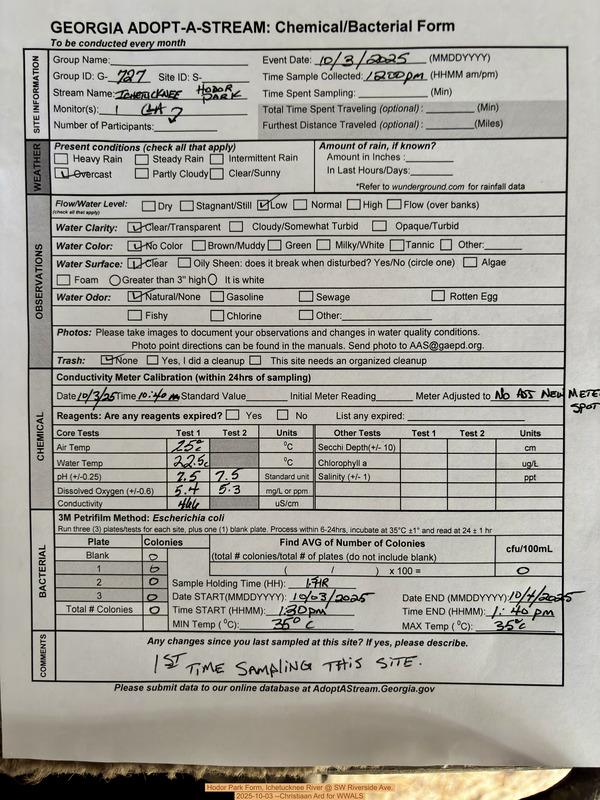 GEORGIA ADOPT-A-STREAM: Chemical/Bacterial Form
To be conducted every month
SITE INFORMATION
Group Name:
Group ID: G- 727 Site ID: S-
Stream Name: ICHETUCKNEE HODOR PARK
Monitor(s): 1
Number of Participants:
Event Date: 10/3/2025 (MMDDYYYY)
Time Sample Collected: 1200pm (HHMM am/pm)
Time Spent Sampling: (Min)
Total Time Spent Traveling (optional): (Min)
Furthest Distance Traveled (optional): (Miles)
WEATHER
Present conditions (check all that apply)
Heavy Rain Steady Rain Intermittent Rain
Overcast Partly Cloudy Clear/Sunny
Amount of rain, if known?
Amount in Inches :
In Last Hours/Days:
*Refer to wunderground.com for rainfall data
OBSERVATIONS
Flow/Water Level: Dry Stagnant/Still Low Normal High Flow (over banks)
(check all that apply)
Water Clarity: Clear/Transparent Cloudy/Somewhat Turbid Opaque/Turbid
Water Color: No Color Brown/Muddy Green Milky/White Tannic Other:
Water Surface: Clear Oily Sheen: does it break when disturbed? Yes/No (circle one) Algae
Foam Greater than 3" high It is white
Water Odor: Natural/None Gasoline Sewage Rotten Egg
Fishy Chlorine Other:
Photos: Please take images to document your observations and changes in water quality conditions.
Photo point directions can be found in the manuals. Send photo to AAS@gaepd.org.
Trash: None Yes, I did a cleanup This site needs an organized cleanup
CHEMICAL
Conductivity Meter Calibration (within 24hrs of sampling)
Date 10/3/25 Time 10:40 am Standard Value Initial Meter Reading Meter Adjusted to NO ADJ NEW METER SPOT
Reagents: Are any reagents expired? Yes No List any expired:
Core Tests Test 1 Test 2 Units Other Tests Test 1 Test 2 Units
Air Temp 25°c °C Secchi Depth(+/- 10) cm
Water Temp 22.5c °C Chlorophyll a ug/L
pH (+/-0.25) 7.5 7.5 Standard unit Salinity (+/- 1) ppt
Dissolved Oxygen (+/-0.6) 5.4 5.3 mg/L or ppm
Conductivity 466 uS/cm
BACTERIAL
3M Petrifilm Method: Escherichia coli
Run three (3) plates/tests for each site, plus one (1) blank plate. Process within 6-24hrs, incubate at 35°C ±1° and read at 24 ± 1 hr
Plate Colonies Find AVG of Number of Colonies cfu/100mL
Blank 0 (total # colonies/total # of plates (do not include blank)
1 0 ( / ) x 100 = 0
2 0 Sample Holding Time (HH): 1 HR
3 0 Date START(MMDDYYYY): 10/03/2025 Date END (MMDDYYYY): 10/4/2025
Total # Colonies 0 Time START (HHMM): 1:30pm Time END (HHMM): 1:40 pm
MIN Temp (°C): 35° c MAX Temp (°C): 35°c
COMMENTS
Any changes since you last sampled at this site? If yes, please describe.
1ST TIME SAMPLING THIS SITE.
Please submit data to our online database at AdoptAStream.Georgia.gov
Hodor Park Form, Ichetucknee River @ SW Riverside Ave,
2025-10-03 --Christiaan Ard for WWALS